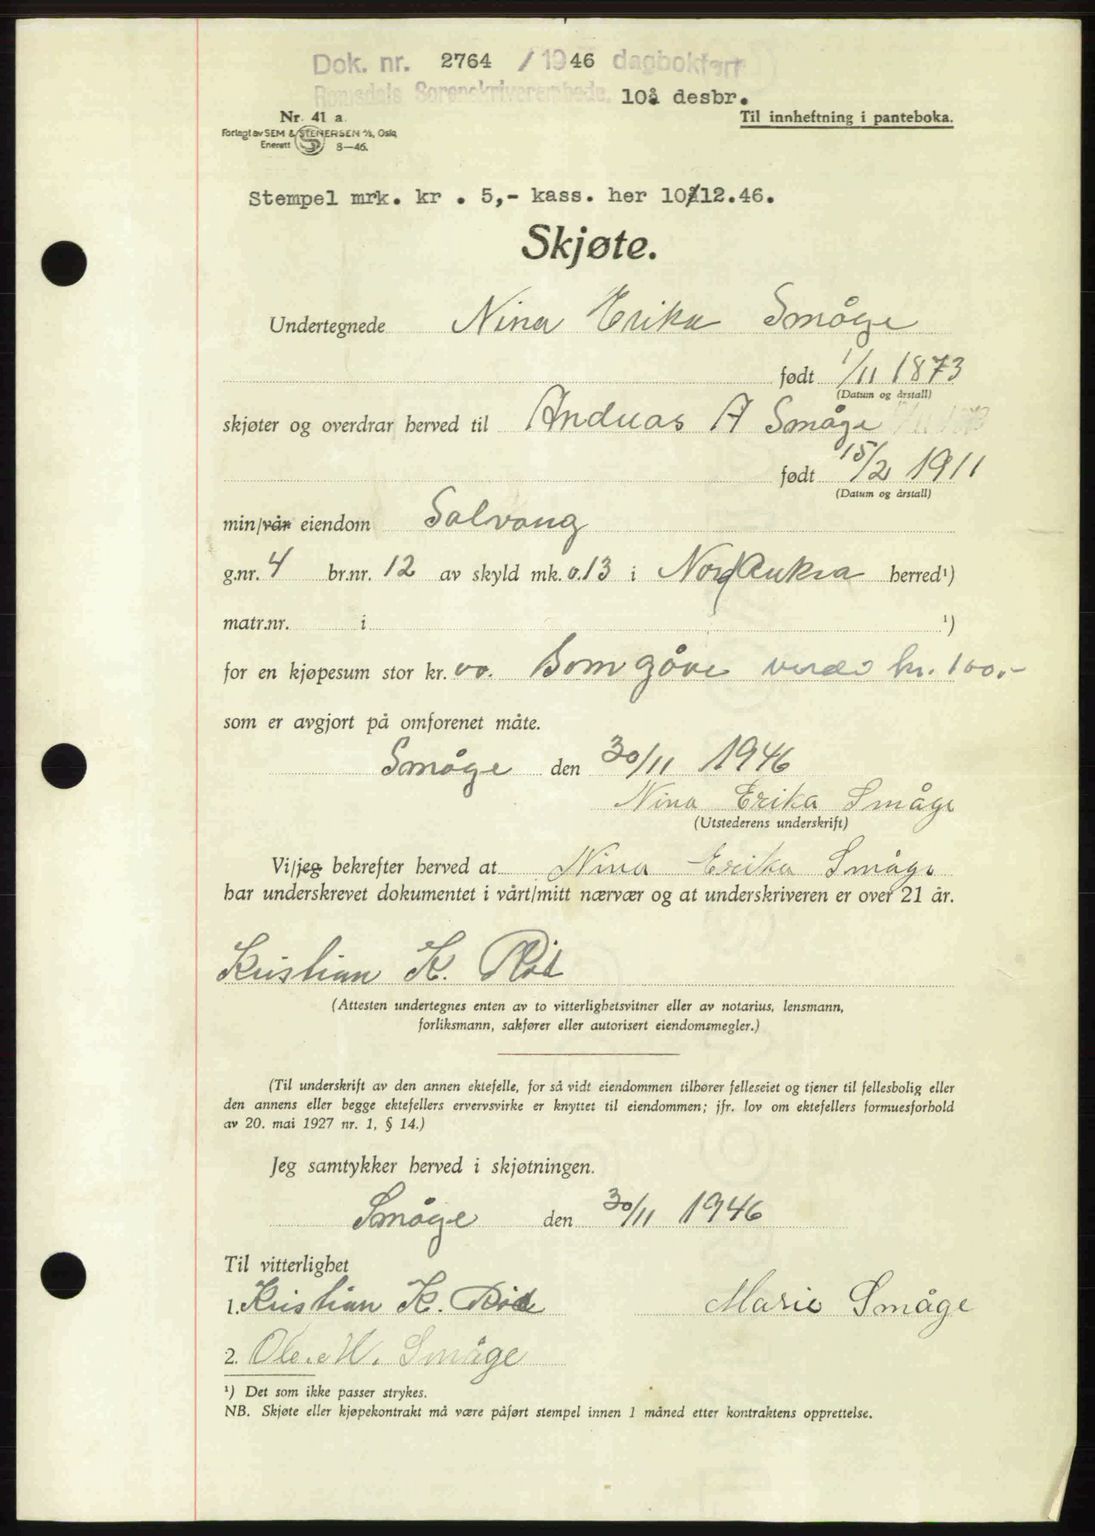 Dok. nr. 2764 / 1946 dagbokført
Romsdals Sorenskriverembede. 10å desbr.
Nr. 41 a.
Til innheftning i panteboka.
Forlagt av SEM & STENERSEN A/S, Oslo
Enerett 8—46.
Stempel mrk. kr . 5,- kass. her 10/12.46.
Skjøte.
Undertegnede Nina Erika Småge
født 1/11 1873
(Datum og årstall)
skjøter og overdrar herved til Andreas A Småge
født 15/2 1911
(Datum og årstall)
min/vår eiendom Solvang
g.nr. 4 br.nr. 12 av skyld mk. 0.13 i Nord Aukra herred¹)
matr.nr. i ¹)
for en kjøpesum stor kr. 00. Som gåve verdi kr. 100.-
som er avgjort på omforenet måte.
Småge den 30/11 1946
Nina Erika Småge
(Utstederens underskrift)
Vi/jeg bekrefter herved at Nina Erika Småge
har underskrevet dokumentet i vårt/mitt nærvær og at underskriveren er over 21 år.
Kristian K. Röd
(Attesten undertegnes enten av to vitterlighetsvitner eller av notarius, lensmann,
forliksmann, sakfører eller autorisert eiendomsmegler.)
(Til underskrift av den annen ektefelle, for så vidt eiendommen tilhører felleseiet og tjener til fellesbolig eller
den annens eller begge ektefellers ervervsvirke er knyttet til eiendommen; jfr. lov om ektefellers formuesforhold
av 20. mai 1927 nr. 1, § 14.)
Jeg samtykker herved i skjøtningen.
Småge den 30/11 1946
Til vitterlighet
1. Kristian K. Röd Marie Småge
2. Ole M. Småge
¹) Det som ikke passer strykes.
NB. Skjøte eller kjøpekontrakt må være påført stempel innen 1 måned etter kontraktens opprettelse.